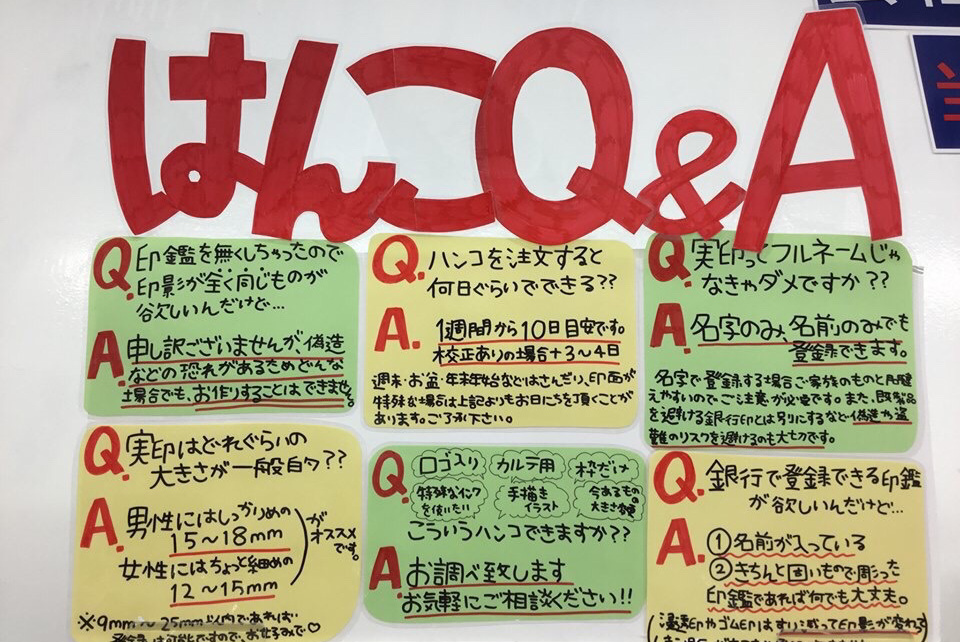 はんこQ&A
Q.印鑑を無くしちゃったので
印影が全く同じものが
欲しいんだけど…
A.申し訳ございませんが、偽造
などの恐れがあるためどんな
場合でも、お作りすることはできません。
Q.ハンコを注文すると
何日ぐらいでできる??
A.1週間から10日目安です。
校正ありの場合+3〜4日
週末・お盆・年末年始などはさんだり、印面が
特殊な場合は上記よりもお日にちを頂くことが
あります。ご了承下さい。
Q.実印ってフルネームじゃ
なきゃダメですか??
A.名字のみ名前のみでも
登録できます。
名字で登録する場合ご家族のものと間違
えやすいのでご注意が必要です。また、既製品
を避ける銀行印とは別にするなど偽造や盗
難のリスクを避けるのも大切です。
Q.実印はどれぐらいの
大きさが一般的??
A.男性にはしっかりめの
15〜18mm
女性にはちょっと細めの
12〜15mm
がオススメです。
※9mm〜25mm以内であれば
登録は可能ですので、お好みで♡
Q.ロゴ入り カルテ用 枠だけ
特殊なインクを使いたい 手描きイラスト 今あるものの大きさ変更
こういうハンコできますか??
A.お調べ致します
お気軽にご相談ください!!
Q.銀行で登録できる印鑑
が欲しいんだけど…
A.①名前が入っている
②きちんと固いもので彫った
印鑑であれば何でも大丈夫。
(浸透印やゴム印はすり減って印影が変わる